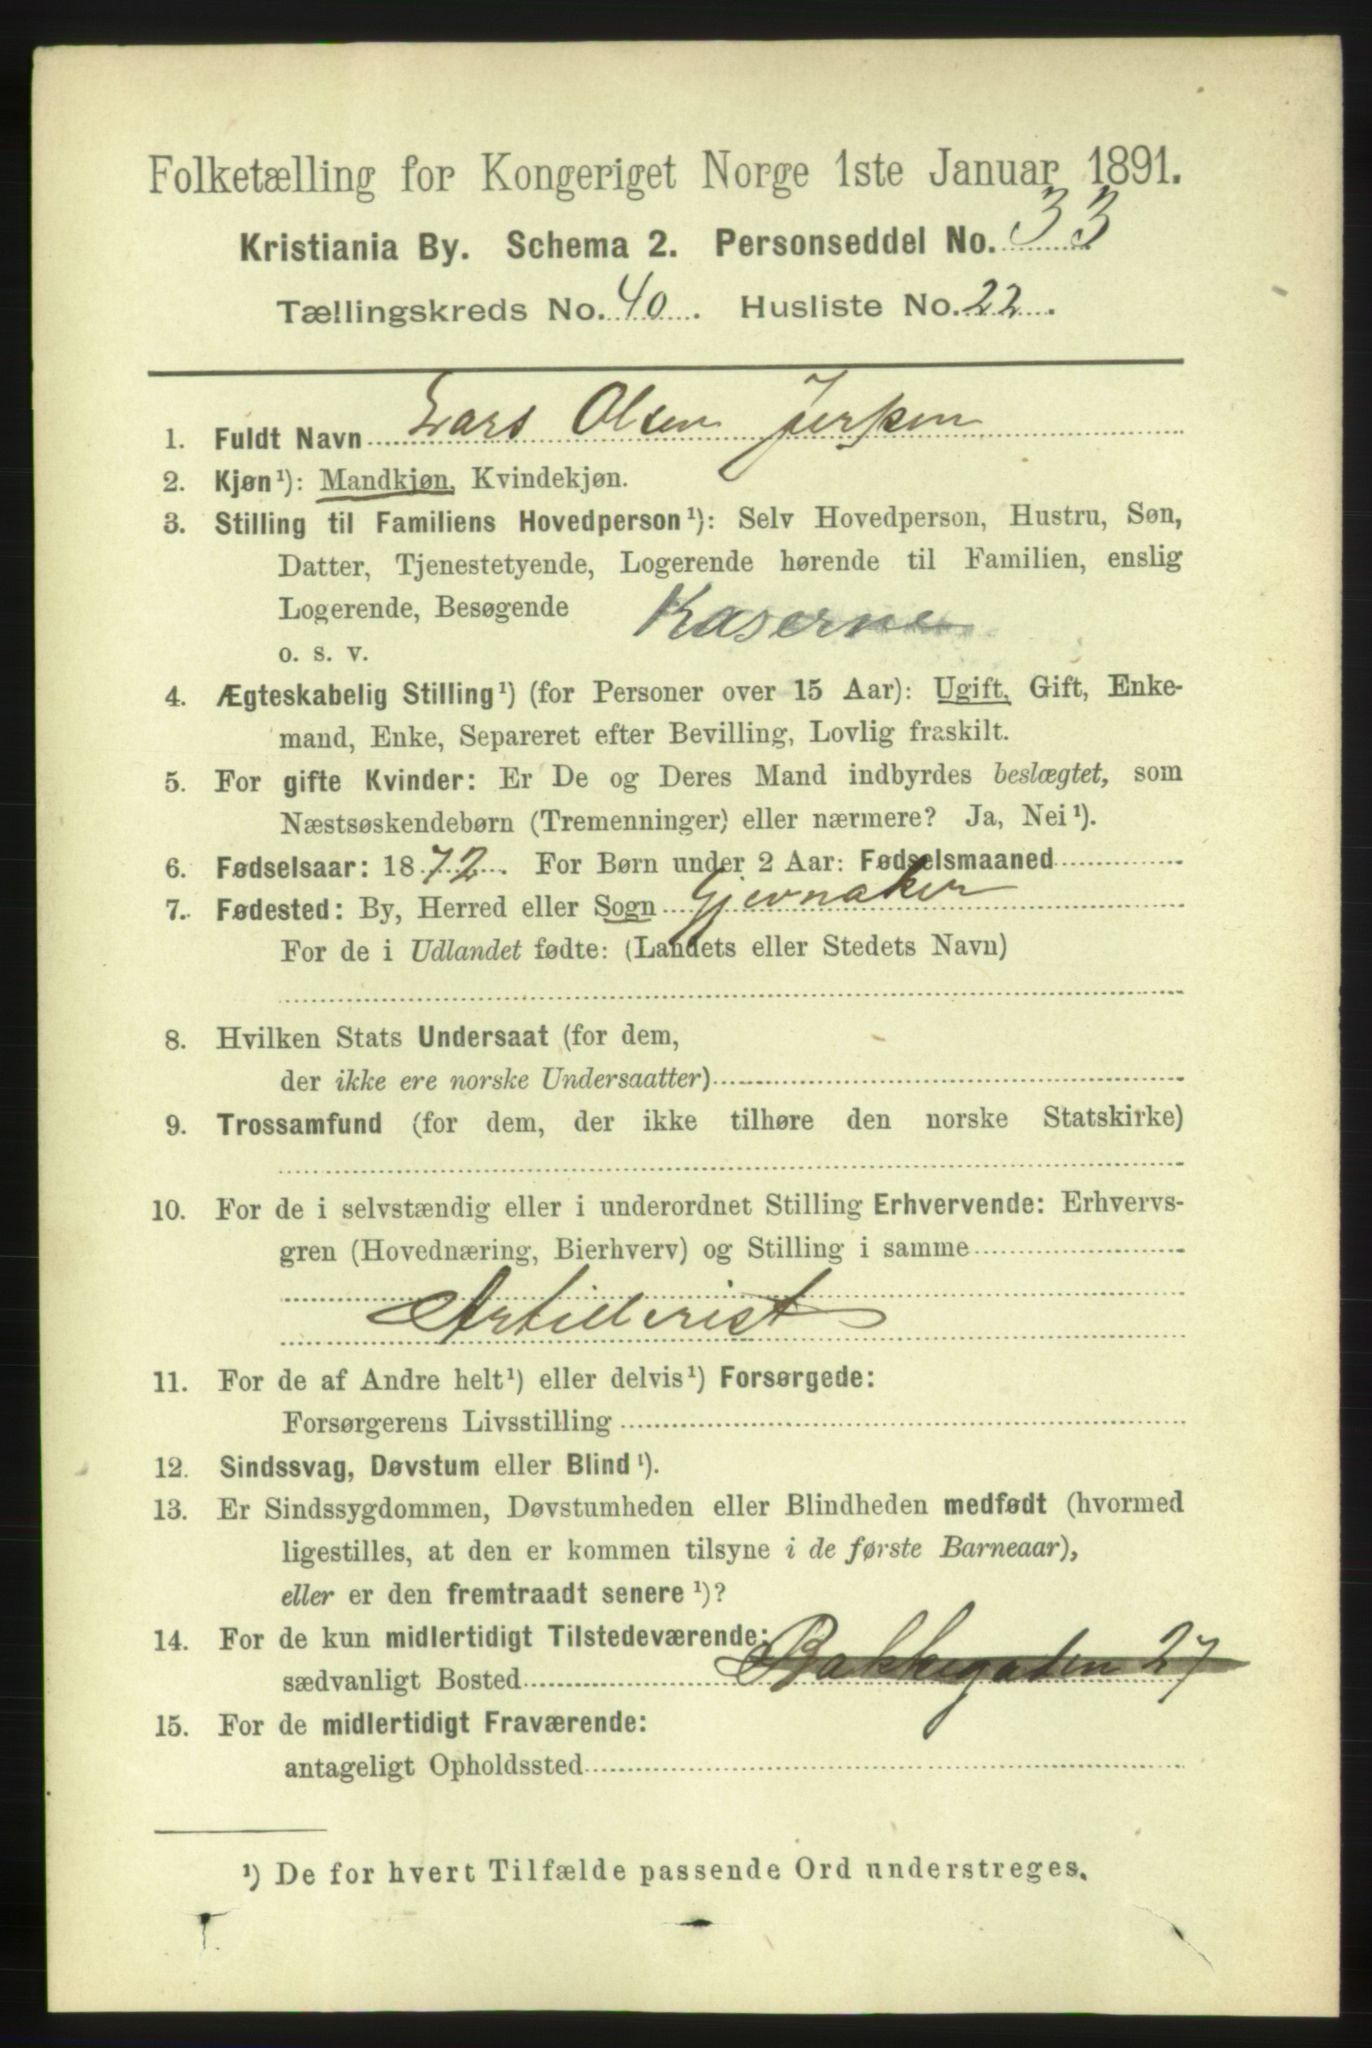 Folketælling for Kongeriget Norge 1ste Januar 1891.
Kristiania By. Schema 2. Personseddel No. 33
Tællingskreds No. 40. Husliste No. 22.
1. Fuldt Navn Lars Olsen Jerpen
2. Kjøn¹): Mandkjøn, Kvindekjøn.
3. Stilling til Familiens Hovedperson¹): Selv Hovedperson, Hustru, Søn,
Datter, Tjenestetyende, Logerende hørende til Familien, enslig
Logerende, Besøgende Kaserne
o. s. v.
4. Ægteskabelig Stilling¹) (for Personer over 15 Aar): Ugift, Gift, Enke-
mand, Enke, Separeret efter Bevilling, Lovlig fraskilt.
5. For gifte Kvinder: Er De og Deres Mand indbyrdes beslægtet, som
Næstsøskendebørn (Tremenninger) eller nærmere? Ja, Nei¹).
6. Fødselsaar: 1872. For Børn under 2 Aar: Fødselsmaaned
7. Fødested: By, Herred eller Sogn Gjevnaker
For de i Udlandet fødte: (Landets eller Stedets Navn)
8. Hvilken Stats Undersaat (for dem,
der ikke ere norske Undersaatter)
9. Trossamfund (for dem, der ikke tilhøre den norske Statskirke)
10. For de i selvstændig eller i underordnet Stilling Erhvervende: Erhvervs-
gren (Hovednæring, Bierhverv) og Stilling i samme
Artillerist
11. For de af Andre helt¹) eller delvis¹) Forsørgede:
Forsørgerens Livsstilling
12. Sindssvag, Døvstum eller Blind¹).
13. Er Sindssygdommen, Døvstumheden eller Blindheden medfødt (hvormed
ligestilles, at den er kommen tilsyne i de første Barneaar),
eller er den fremtraadt senere¹)?
14. For de kun midlertidigt Tilstedeværende:
sædvanligt Bosted Bakkegaden 27
15. For de midlertidigt Fraværende:
antageligt Opholdssted
¹) De for hvert Tilfælde passende Ord understreges.